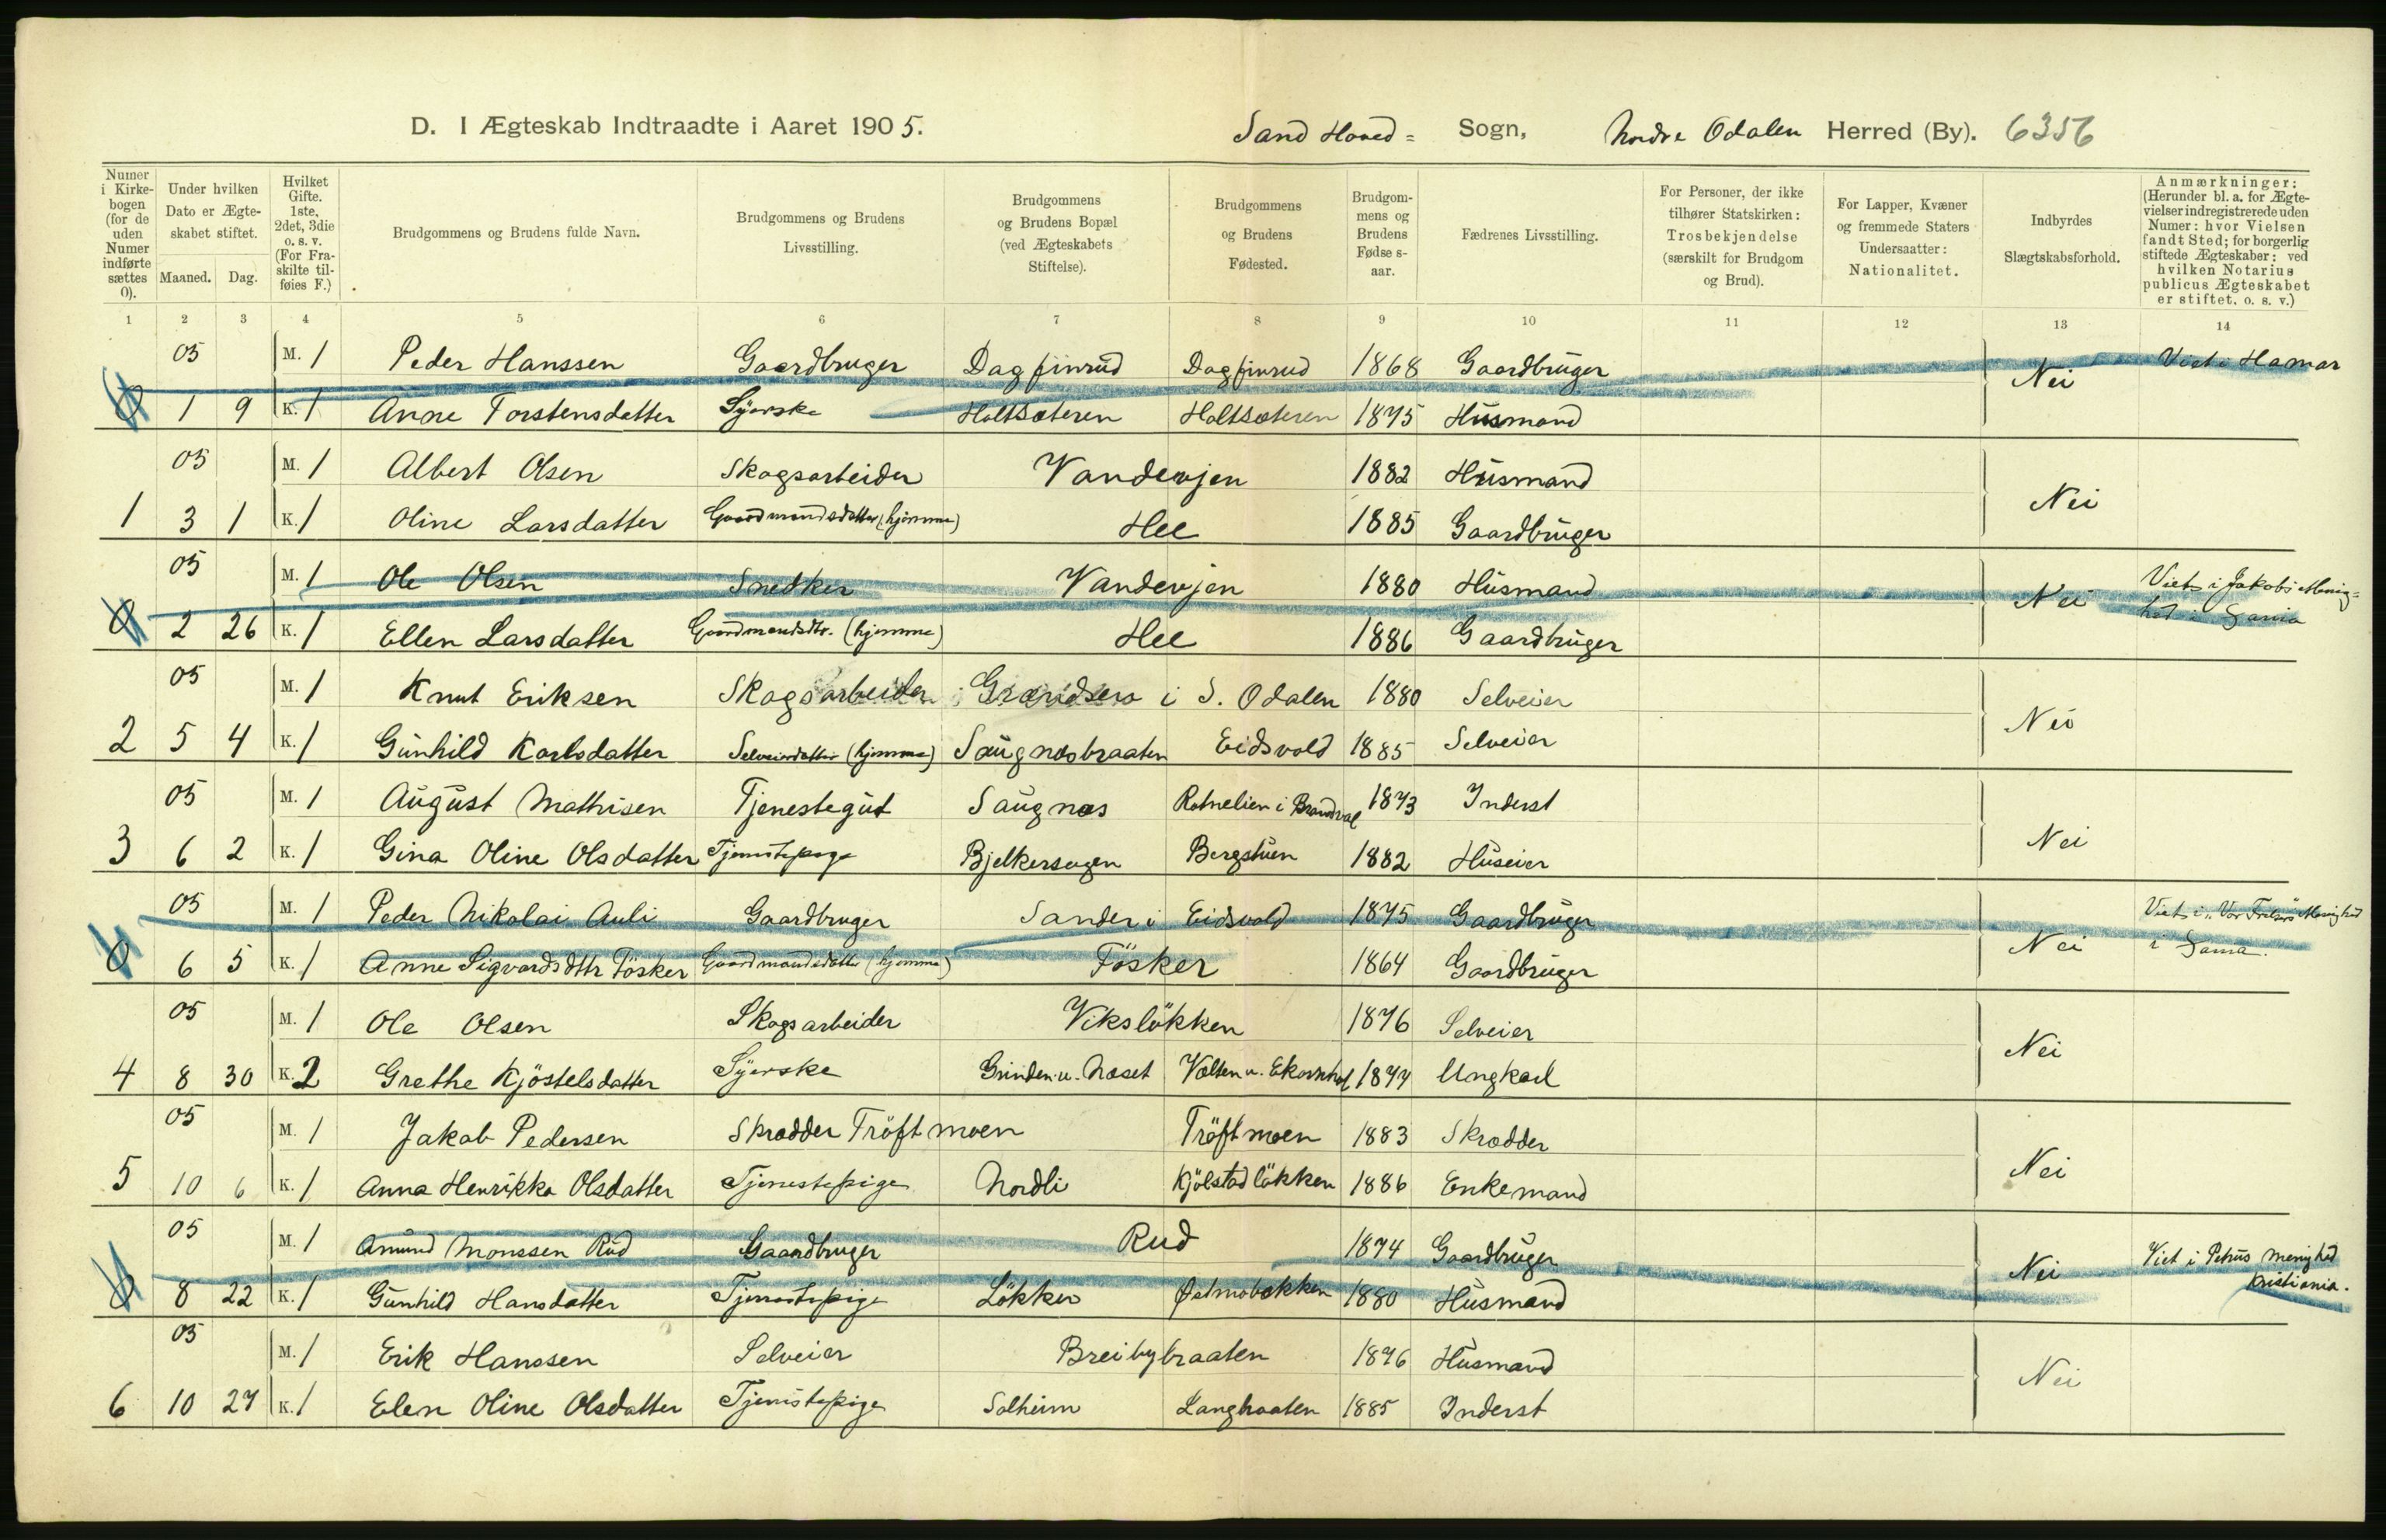 D. I Ægteskab Indtraadte i Aaret 1905. Sand Hoved= Sogn, Nordre Odalen Herred (By). 6356
Numer i Kirkebogen (for de uden Numer indførte sættes 0).
Under hvilken Dato er Ægteskabet stiftet.
Maaned. Dag.
Hvilket Gifte. 1ste, 2det, 3die o. s. v. (For Fraskilte tilføies F.)
Brudgommens og Brudens fulde Navn.
Brudgommens og Brudens Livsstilling.
Brudgommens og Brudens Bopæl (ved Ægteskabets Stiftelse).
Brudgommens og Brudens Fødested.
Brudgommens og Brudens Fødselsaar.
Fædrenes Livsstilling.
For Personer, der ikke tilhører Statskirken: Trosbekjendelse (særskilt for Brudgom og Brud).
For Lapper, Kvæner og fremmede Staters Undersaatter: Nationalitet.
Indbyrdes Slægtskabsforhold.
Anmærkninger: (Herunder bl. a. for Ægtevielser indregistrerede uden Numer: hvor Vielsen fandt Sted; for borgerlig stiftede Ægteskaber: ved hvilken Notarius publicus Ægteskabet er stiftet. o. s. v.)
1 2 3 4 5 6 7 8 9 10 11 12 13 14
05 M. 1 Peder Hanssen Gaardbruger Dagfinrud Dagfinrud 1868 Gaardbruger Nei Viet i Hamar
0 1 9 K. 1 Anne Torstensdatter Syerske Holtsæteren Holtsæteren 1875 Husmand
05 M. 1 Albert Olsen Skogsarbeider Vandevjen 1882 Husmand Nei
1 3 1 K. 1 Oline Larsdatter Gaardmandsdatter (hjemme) Hee 1885 Gaardbruger
05 M. 1 Ole Olsen Snedker Vandevjen 1880 Husmand Nei Viet i Jakobs Menig=
0 2 26 K. 1 Ellen Larsdatter Gaardmandsdtr. (hjemme) Hee 1886 Gaardbruger hed i
05 M. 1 Knut Eriksen Skogsarbeider i S. Odalen 1880 Selveier Nei
2 5 4 K. 1 Gunhild Karlsdatter Selveierdatter (hjemme) Saugnæsbraaten Eidsvold 1885 Selveier
05 M. 1 August Mathisen Tjenestegut Saugnæs Rotnelien i Brandval 1873 Inderst Nei
3 6 2 K. 1 Gina Oline Olsdatter Tjenestepige Bjelkersaugen Bergstuen 1882 Huseier
05 M. 1 Peder Nikolai Auli Gaardbruger Sander i Eidsvold 1875 Gaardbruger Nei Viet i "Vor Frelsers" Menighed
0 6 5 K. 1 Anne Sigvardsdtr Fösker Gaardmandsdatter (hjemme) Fösker 1864 Gaardbruger i
05 M. 1 Ole Olsen Skogsarbeider Vikslökken 1876 Selveier Nei
4 8 30 K. 2 Grethe Kjöstelsdatter Syerske Grinden u. Næset 1877 Ungkarl
05 M. 1 Jakob Pedersen Skrædder Tröftmoen Tröftmoen 1883 Skrædder Nei
5 10 6 K. 1 Anna Henrikka Olsdatter Tjenestepige Nordli Kjölstadlökken 1886 Enkemand
05 M. 1 Amund Monssen Rud Gaardbruger Rud 1874 Gaardbruger Nei Viet i Petrus Menighed
0 8 22 K. 1 Gunhild Hansdatter Tjenestepige Lökken Østmobakken 1880 Husmand Kristiania.
05 M. 1 Erik Hanssen Selveier Breibybraaten 1876 Husmand Nei
6 10 27 K. 1 Elen Oline Olsdatter Tjenestepige Solheim Langbraaten 1885 Inderst